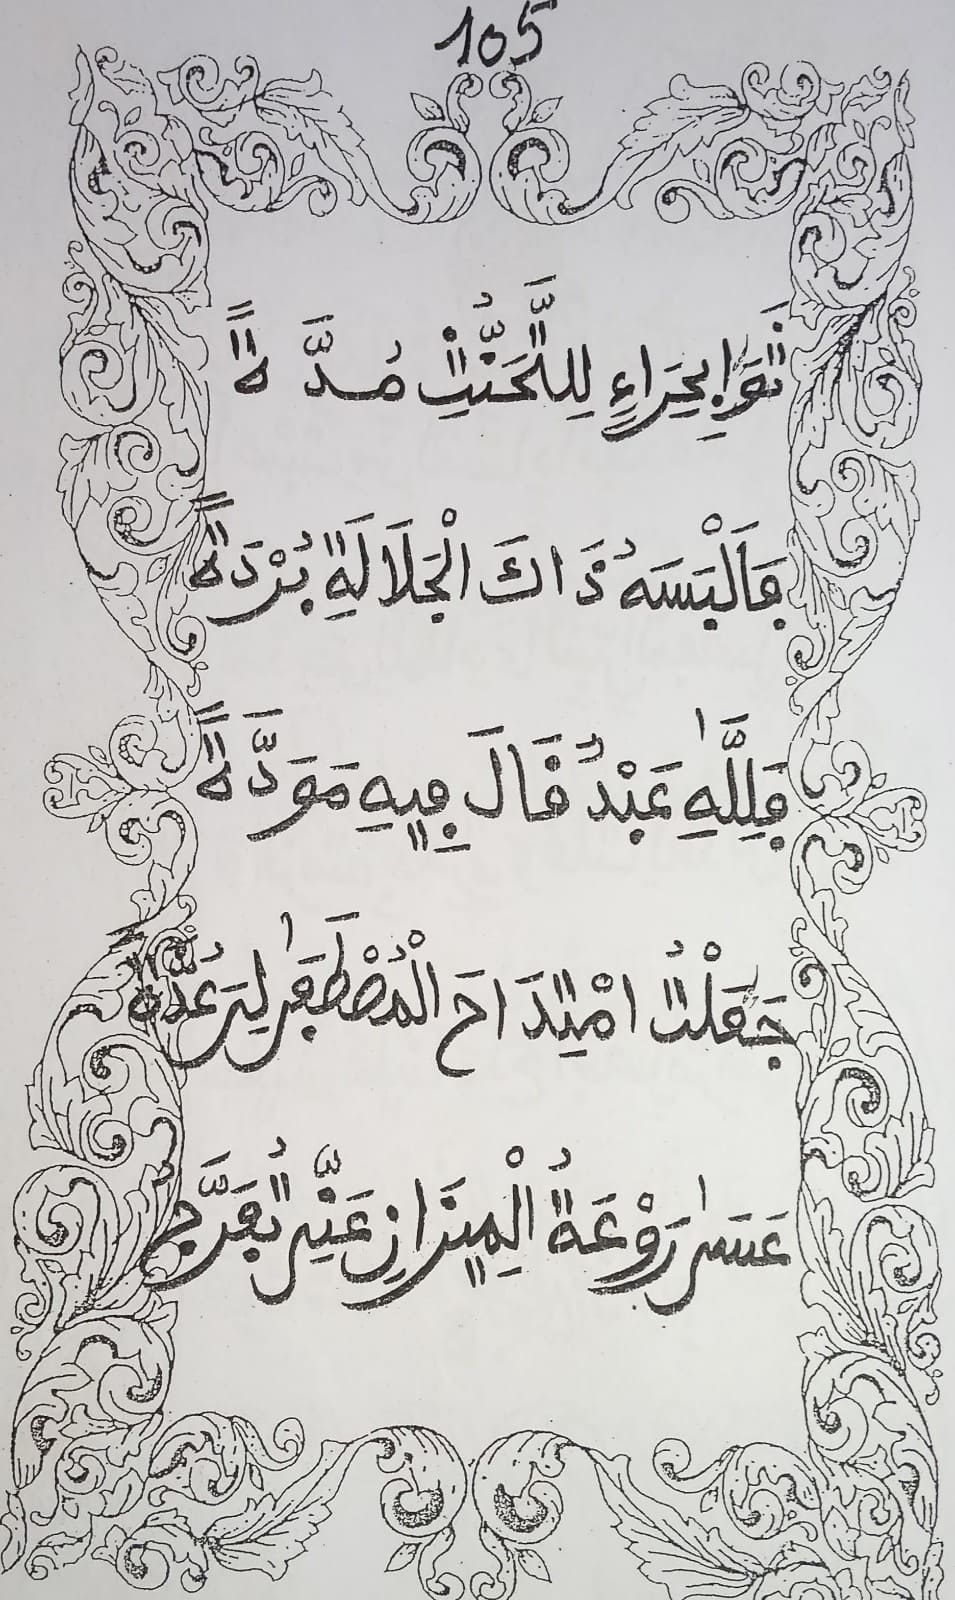 105
ثَوَى بِحِرَاءٍ لِلتَّحَنُّثِ مُدَّةً
فَأَلْبَسَهُ ذَاكَ الْجَلَالَةِ بُرْدَةً
فَلِلَّهِ عَبْدٌ قَالَ فِيهِ مَوَدَّةً
جَعَلْتُ امْتِدَاحَ الْمُصْطَفَى لِي عُدَّةً
عَسَى رَوْعَةُ الْمِيزَانِ عَنِّي تُفَرَّجُ